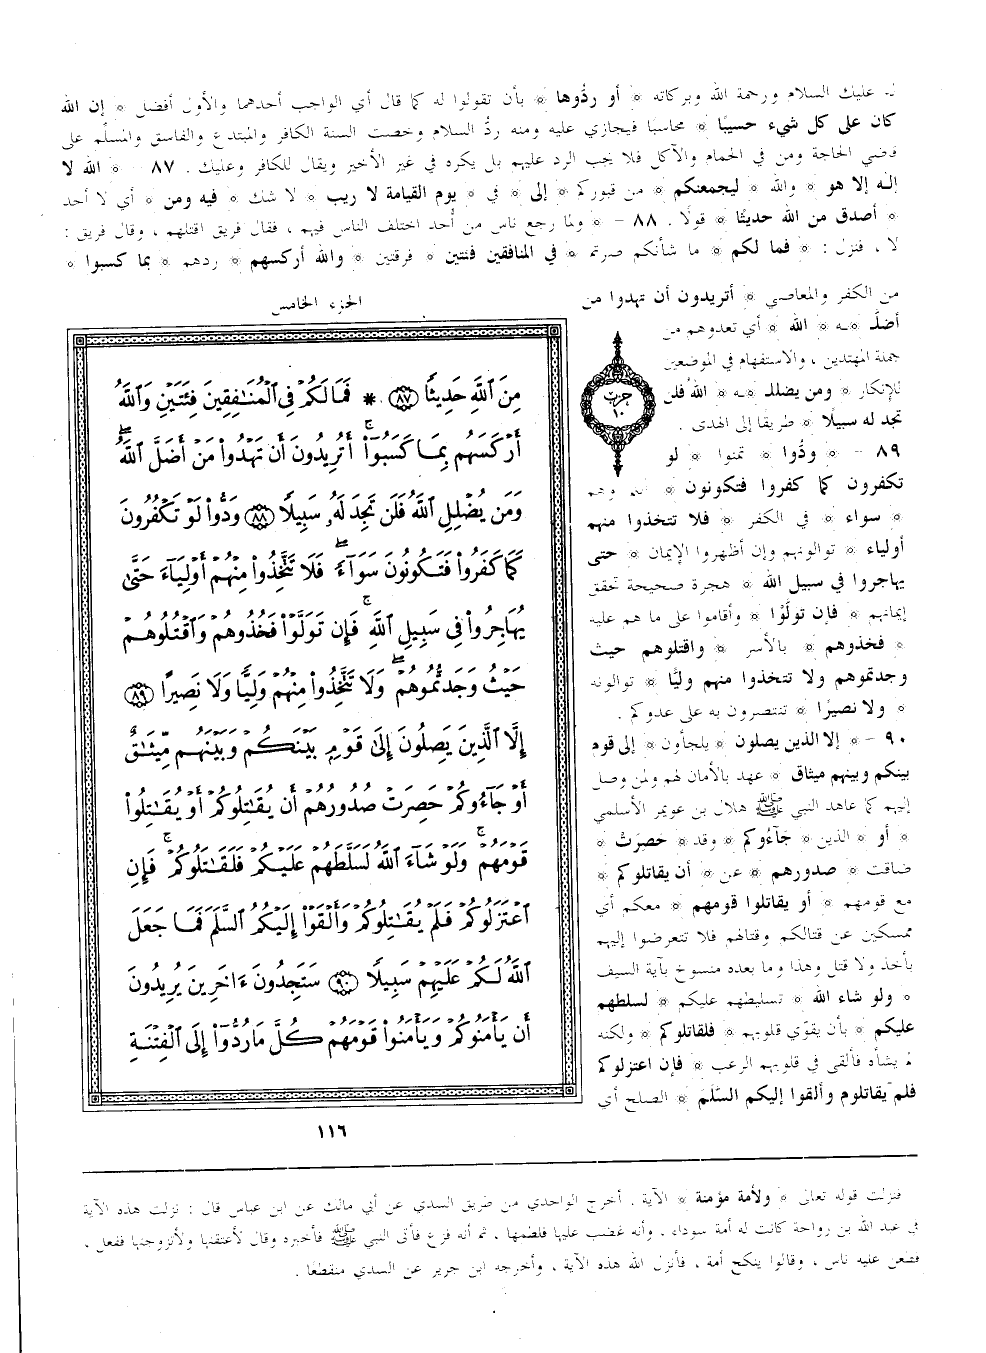 عليك السلام ورحمة الله وبركاته ﴿ أو ردُّوها ﴾ بأن تقولوا له كما قال أي الواجب أحدهما والأول أفضل ﴿ إن الله
كان على كل شيء حسيبًا ﴾ محاسبًا فيجازي عليه ومنه ردُّ السلام وخصت السنة الكافر والمبتدع والفاسق والمسلِّم على
قاضي الحاجة ومن في الحمام والآكل فلا يجب الرد عليهم بل يكره في غير الأخير ويقال للكافر وعليك . ٨٧ - ﴿ الله لا
إله إلا هو ﴾ والله ﴿ ليجمعنكم ﴾ من قبوركم ﴿ إلى ﴾ في ﴿ يوم القيامة لا ريب ﴾ لا شك ﴿ فيه ومن ﴾ أي لا أحد
﴿ أصدق من الله حديثًا ﴾ قولًا . ٨٨ - ﴿ ولما رجع ناس من أُحد اختلف الناس فيهم ، فقال فريق اقتلهم ، وقال فريق :
لا ، فنزل : ﴿ فما لكم ﴾ ما شأنكم صرتم ﴿ في المنافقين فئتين ﴾ فرقتين ﴿ والله أركسهم ﴾ ردهم ﴿ بما كسبوا ﴾
من الكفر والمعاصي ﴿ أتريدون أن تهدوا من
أضلَّ ﴾ ـه ﴿ الله ﴾ أي تعدوهم من
جملة المهتدين ، والاستفهام في الموضعين
للإنكار ﴿ ومن يضلل ﴾ ـه ﴿ اللهُ فلن
تجد له سبيلًا ﴾ طريقًا إلى الهدى .
٨٩ - ﴿ ودُّوا ﴾ تمنوا ﴿ لو
تكفرون كما كفروا فتكونون ﴾ أنتم وهم
﴿ سواء ﴾ في الكفر ﴿ فلا تتخذوا منهم
أولياء ﴾ توالونهم وإن أظهروا الإيمان ﴿ حتى
يهاجروا في سبيل الله ﴾ هجرة صحيحة تحقق
إيمانهم ﴿ فإن تولَّوْا ﴾ وأقاموا على ما هم عليه
﴿ فخذوهم ﴾ بالأسر ﴿ واقتلوهم حيث
وجدتموهم ولا تتخذوا منهم وليًّا ﴾ توالونه
﴿ ولا نصيرًا ﴾ تنتصرون به على عدوكم .
٩٠ - ﴿ إلا الذين يصلون ﴾ يلجأون ﴿ إلى قوم
بينكم وبينهم ميثاق ﴾ عهد بالأمان لهم ولمن وصل
إليهم كما عاهد النبي ﷺ هلال بن عويمر الأسلمي
﴿ أو ﴾ الذين ﴿ جاءُوكم ﴾ وقد ﴿ حصرتْ ﴾
ضاقت ﴿ صدورهم ﴾ عن ﴿ أن يقاتلوكم ﴾
مع قومهم ﴿ أو يقاتلوا قومهم ﴾ معكم أي
ممسكين عن قتالكم وقتالهم فلا تتعرضوا إليهم
بأخذ ولا قتل وهذا وما بعده منسوخ بآية السيف
﴿ ولو شاء الله ﴾ تسليطهم عليكم ﴿ لسلطهم
عليكم ﴾ بأن يقوّي قلوبهم ﴿ فلقاتلوكم ﴾ ولكنه
لم يشأه فألقى في قلوبهم الرعب ﴿ فإن اعتزلوكم
فلم يقاتلوم وألقوا إليكم السَّلَمَ ﴾ الصلح أي
حزب
١٠
الجزء الخامس
مِنَ ٱللَّهِ حَدِيثًا ٨٧ * فَمَا لَكُمْ فِى ٱلْمُنَٰفِقِينَ فِئَتَيْنِ وَٱللَّهُ
أَرْكَسَهُم بِمَا كَسَبُوٓا۟ ۚ أَتُرِيدُونَ أَن تَهْدُوا۟ مَنْ أَضَلَّ ٱللَّهُ ۖ
وَمَن يُضْلِلِ ٱللَّهُ فَلَن تَجِدَ لَهُۥ سَبِيلًا ٨٨ وَدُّوا۟ لَوْ تَكْفُرُونَ
كَمَا كَفَرُوا۟ فَتَكُونُونَ سَوَآءً ۖ فَلَا تَتَّخِذُوا۟ مِنْهُمْ أَوْلِيَآءَ حَتَّىٰ
يُهَاجِرُوا۟ فِى سَبِيلِ ٱللَّهِ ۚ فَإِن تَوَلَّوْا۟ فَخُذُوهُمْ وَٱقْتُلُوهُمْ
حَيْثُ وَجَدتُّمُوهُمْ ۖ وَلَا تَتَّخِذُوا۟ مِنْهُمْ وَلِيًّا وَلَا نَصِيرًا ٨٩
إِلَّا ٱلَّذِينَ يَصِلُونَ إِلَىٰ قَوْمٍۭ بَيْنَكُمْ وَبَيْنَهُم مِّيثَٰقٌ
أَوْ جَآءُوكُمْ حَصِرَتْ صُدُورُهُمْ أَن يُقَٰتِلُوكُمْ أَوْ يُقَٰتِلُوا۟
قَوْمَهُمْ ۚ وَلَوْ شَآءَ ٱللَّهُ لَسَلَّطَهُمْ عَلَيْكُمْ فَلَقَٰتَلُوكُمْ ۚ فَإِنِ
ٱعْتَزَلُوكُمْ فَلَمْ يُقَٰتِلُوكُمْ وَأَلْقَوْا۟ إِلَيْكُمُ ٱلسَّلَمَ فَمَا جَعَلَ
ٱللَّهُ لَكُمْ عَلَيْهِمْ سَبِيلًا ٩٠ سَتَجِدُونَ ءَاخَرِينَ يُرِيدُونَ
أَن يَأْمَنُوكُمْ وَيَأْمَنُوا۟ قَوْمَهُمْ كُلَّ مَا رُدُّوٓا۟ إِلَى ٱلْفِتْنَةِ
١١٦
فنزلت قوله تعالى ﴿ ولأمة مؤمنة ﴾ الآية . أخرج الواحدي من طريق السدي عن أبي مالك عن ابن عباس قال : نزلت هذه الآية
في عبد الله بن رواحة كانت له أمة سوداء ، وأنه غضب عليها فلطمها ، ثم أنه فزع فأتى النبي ﷺ فأخبره وقال لأعتقنها ولأتزوجنها ففعل ،
فطعن عليه ناس ، وقالوا ينكح أمة ، فأنزل الله هذه الآية ، وأخرجه ابن جرير عن السدي منقطعًا .